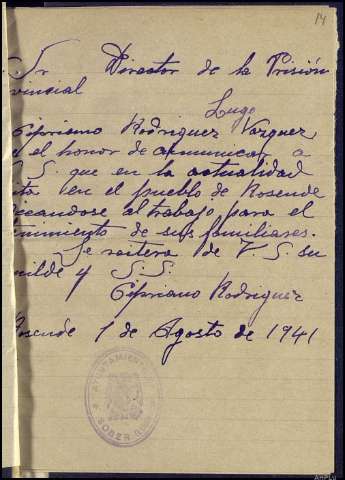 14
Sr Director de la Prisión
vincial
Lugo
Cipriano Rodriguez Vazquez
el honor de comunicar a
S. que en la actualidad
ita en el pueblo de Rosende
icandose al trabajo para el
tenimiento de sus familiares.
Se reitera de V. S. su
milde y S. S.
Cipriano Rodriguez
Rosende 1 de Agosto de 1941
AYUNTAMIEN
SOBER
AHPLu